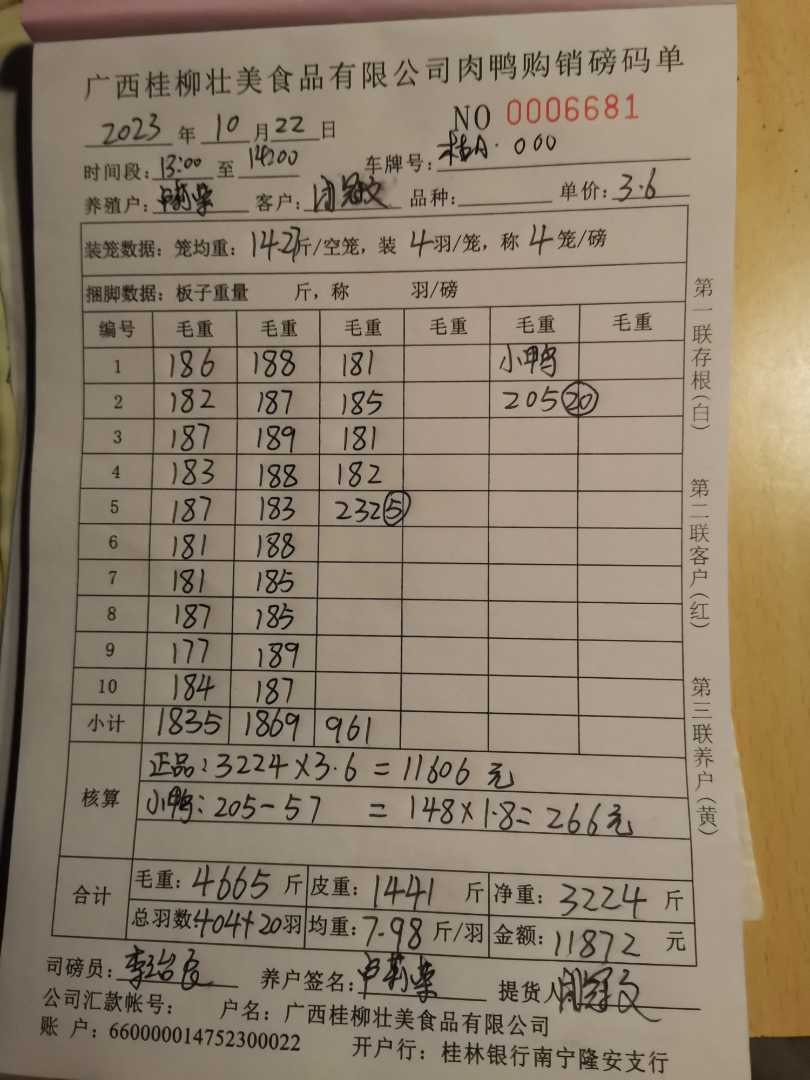 广西桂柳壮美食品有限公司肉鸭购销磅码单
2023 年 10 月 22 日 NO 0006681
时间段: 13:00 至 14:00 车牌号: 桂A·000
养殖户: 客户: 闭冠文 品种: 单价: 3.6
装笼数据: 笼均重: 14.27斤/空笼, 装 4 羽/笼, 称 4 笼/磅
捆脚数据: 板子重量 斤, 称 羽/磅
编号 毛重 毛重 毛重 毛重 毛重 毛重
1 186 188 181 小鸭
2 182 187 185 205 20
3 187 189 181
4 183 188 182
5 187 183 232 5
6 181 188
7 181 185
8 187 185
9 177 189
10 184 187
小计 1835 1869 961
核算
正品: 3224×3.6 = 11606 元
小鸭: 205-57 = 148×1.8= 266元
合计
毛重: 4665 斤 皮重: 1441 斤 净重: 3224 斤
总羽数: 404+20羽 均重: 7.98 斤/羽 金额: 11872 元
司磅员: 养户签名: 提货人 闭冠文
公司汇款帐号: 户名: 广西桂柳壮美食品有限公司
账 户: 660000014752300022 开户行: 桂林银行南宁隆安支行
第一联存根(白)
第二联客户(红)
第三联养户(黄)